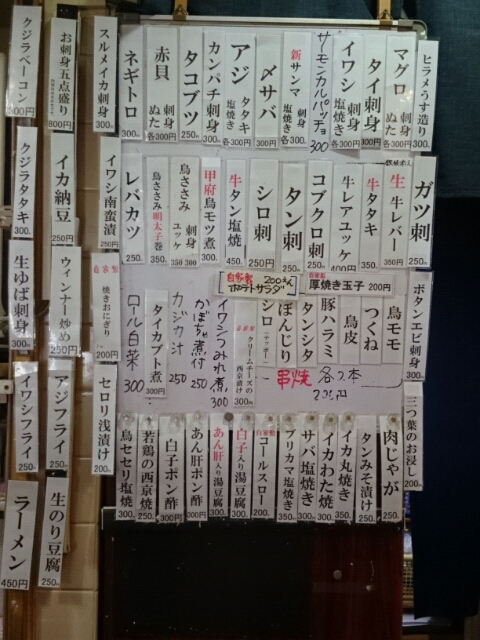 ヒラメうす造り 300円
マグロ 刺身 ぬた 各300円
タイ刺身 300円
イワシ 刺身 塩焼き 各300円
サーモンカルパッチョ 300
新サンマ 刺身 塩焼き 各300円
〆サバ 300円
アジ タタキ 塩焼き 各300円
カンパチ刺身 300円
タコブツ 250円
赤貝 刺身 ぬた 各300円
ネギトロ 300円
スルメイカ刺身 300円
お刺身五点盛り 800円
クジラベーコン 300円
ガツ刺 250円
生牛レバー 350
牛タタキ
牛レアユッケ 400円
コブクロ刺
タン刺 250円
シロ刺 250円
牛タン塩焼 450
甲府鳥モツ煮 300
鳥ささみ 刺身 ユッケ 350 300
鳥ささみ明太子巻 350
レバカツ 250
イワシ南蛮漬 250円
イカ納豆 250円
クジラタタキ 300
自家製 ポテトサラダ 200えん
自家製 厚焼き玉子 200円
ボタンエビ刺身 300円
鳥モモ
つくね
鳥皮
豚ハラミ
タンシタ
ぼんじり
シロ
串焼 各2本 200円
自家製 クリームチーズの西京漬け 300
イワシつみれ煮 300
かぼちゃ煮付 250
カジカ汁 250
タイカブト煮 300円
ロール白菜 300
自家製 焼きおにぎり 200円
ウィンナー炒め
生ゆば刺身 300円
三つ葉のお浸し 200
肉じゃが 250
タンみそ漬け 250円
イカ丸焼き
イカわた焼 300
サバ塩焼き 300円
ブリカマ塩焼き 350
自家製 コールスロー 200
白子入り湯豆腐 300円
あん肝入り湯豆腐 300円
あん肝ポン酢 300円
白子ポン酢 300円
若鶏の西京焼 250
鳥セセリ塩焼 300
セロリ浅漬け 200
アジフライ 250円
イワシフライ 250円
生のり豆腐 250
ラーメン 450円